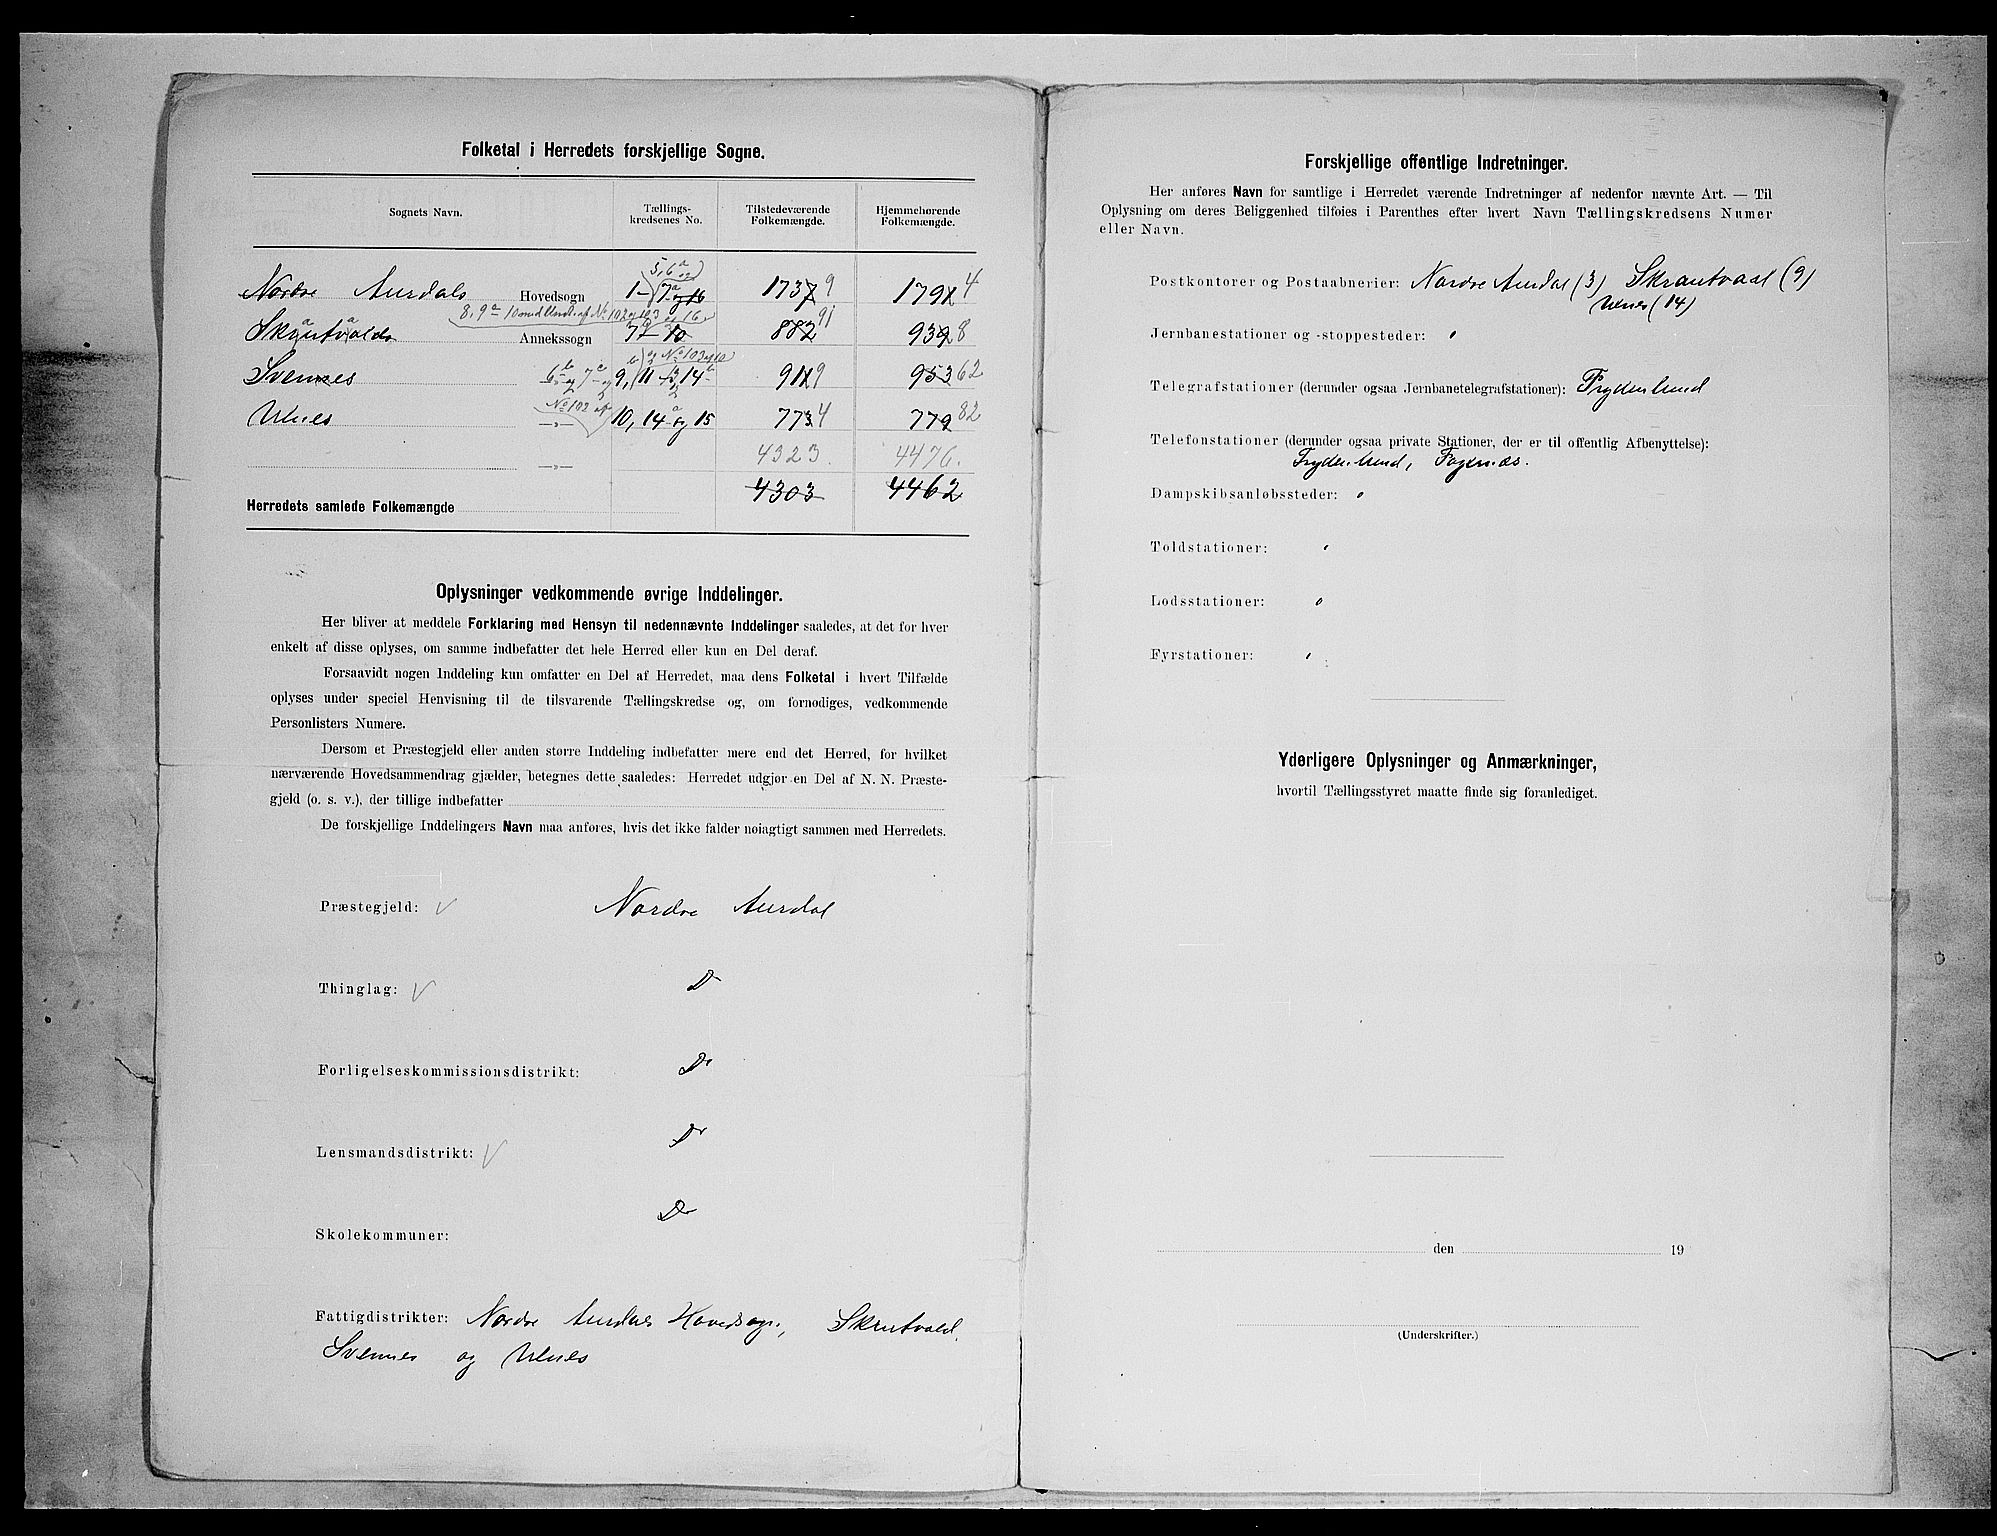 Folketal i Herredets forskjellige Sogne.
Sognets Navn.
Tællings-
kredsenes No.
Tilstedeværende
Folkemængde.
Hjemmehørende
Folkemængde.
5, 6a og
Nordre Aurdals Hovedsogn 1- 7a og 16 1737 9 1791 4
8, 9a 10 med Undt. af No 102 og 103 og 16
Skrutvalds Annekssogn 7 10 882 91 939 8
b og No 103 af 10
Svennes 6b og 7c og 9, 11 - 13 og 14b 911 9 953 62
No 102 af
Ulnes —»— 10, 14a og 15 773 4 779 82
—»— 4323. 4476.
4303 4462
Herredets samlede Folkemængde
Oplysninger vedkommende øvrige Inddelinger.
Her bliver at meddele Forklaring med Hensyn til nedennævnte Inddelinger saaledes, at det for hver
enkelt af disse oplyses, om samme indbefatter det hele Herred eller kun en Del deraf.
Forsaavidt nogen Inddeling kun omfatter en Del af Herredet, maa dens Folketal i hvert Tilfælde
oplyses under speciel Henvisning til de tilsvarende Tællingskredse og, om fornødiges, vedkommende
Personlisters Numere.
Dersom et Præstegjeld eller anden større Inddeling indbefatter mere end det Herred, for hvilket
nærværende Hovedsammendrag gjælder, betegnes dette saaledes: Herredet udgjør en Del af N. N. Præste-
gjeld (o. s. v.), der tillige indbefatter
De forskjellige Inddelingers Navn maa anføres, hvis det ikke falder nøiagtigt sammen med Herredets.
Præstegjeld: Nordre Aurdal
Thinglag: Do
Forligelseskommissionsdistrikt: Do
Lensmandsdistrikt: Do
Skolekommuner: Do
Fattigdistrikter: Nordre Aurdals Hovedsogn, Skrutvold,
Svennes og Ulnes
Forskjellige offentlige Indretninger.
Her anføres Navn for samtlige i Herredet værende Indretninger af nedenfor nævnte Art. — Til
Oplysning om deres Beliggenhed tilføies i Parenthes efter hvert Navn Tællingskredsens Numer
eller Navn.
Postkontorer og Postaabnerier: Nordre Aurdal (3) Skrautvaal (9)
Ulnes (14)
Jernbanestationer og -stoppesteder: "
Telegrafstationer (derunder ogsaa Jernbanetelegrafstationer): Frydenlund
Telefonstationer (derunder ogsaa private Stationer, der er til offentlig Afbenyttelse):
Frydenlund, Fagernæs.
Dampskibsanløbssteder: "
Toldstationer: "
Lodsstationer: "
Fyrstationer: "
Yderligere Oplysninger og Anmærkninger,
hvortil Tællingsstyret maatte finde sig foranlediget.
den 19
(Underskrifter.)